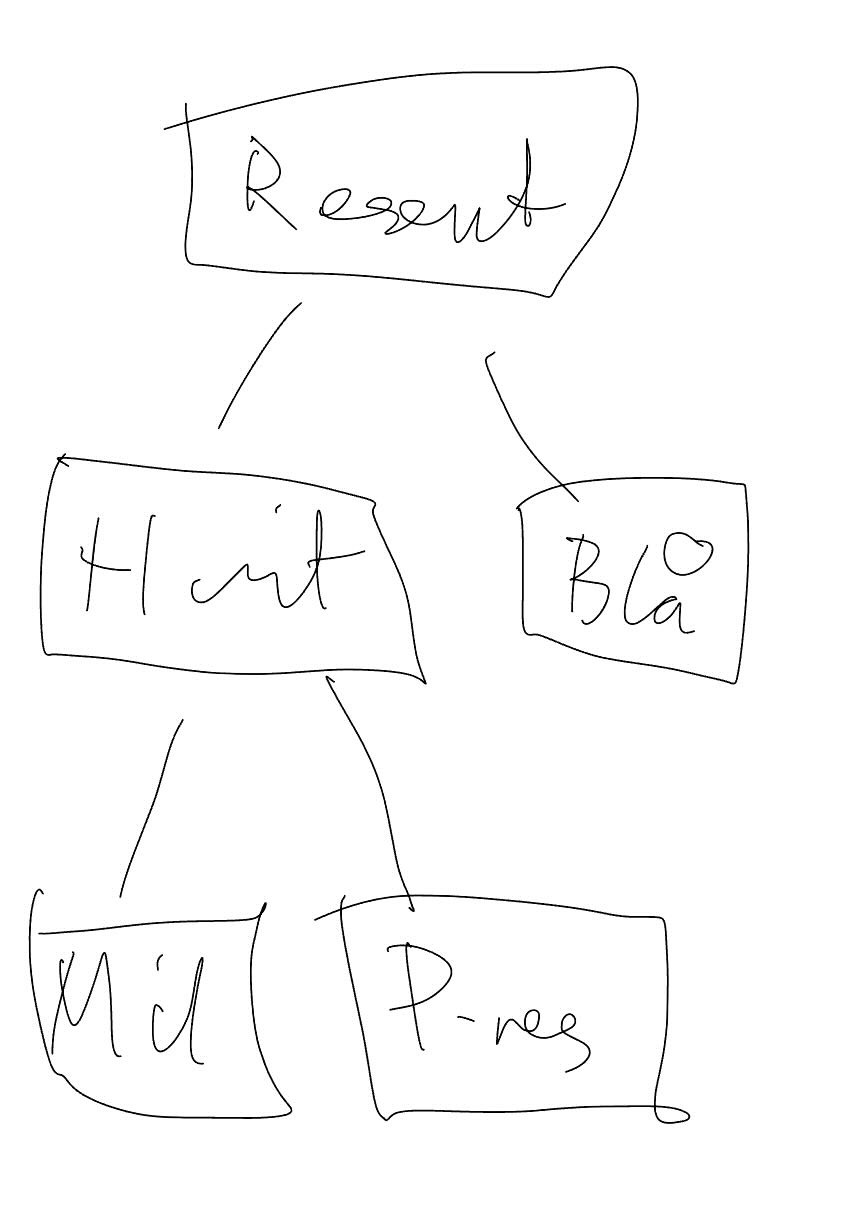 Resent
Hvit
Blå
Mil
P-res